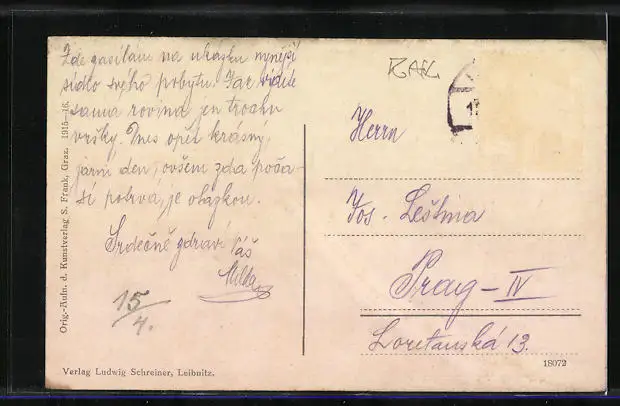 Zde zasílám na ukázku nynější
sídlo svého pobytu. Jak vidíte
sama rovina jen trochu
vršky. Dnes opět krásný
jarní den, ovšem zda poča-
sí potrvá, je otázkou.
Srdečně zdraví Váš
15/4.
Orig.-Aufn. d. Kunstverlag S. Frank, Graz. 1915—16.
Verlag Ludwig Schreiner, Leibnitz.
Herrn
Jos. Leština
Prag – IV
Loretanská 13.
18072